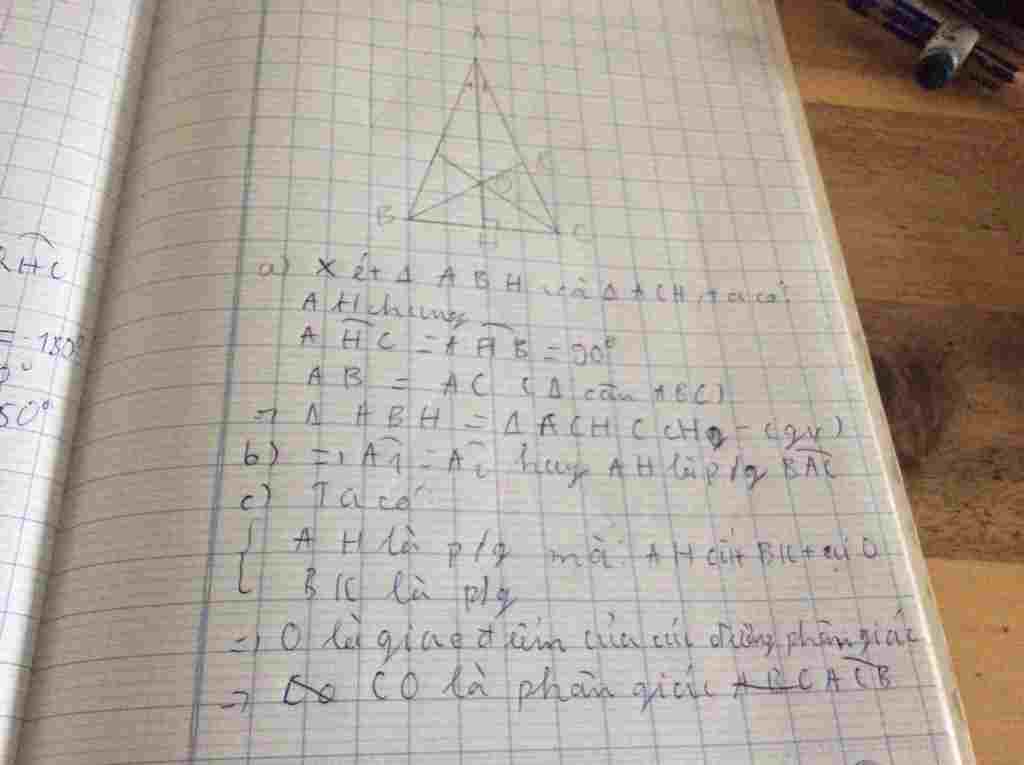 A
K
O
B
H
C
a) Xét Δ ABH và Δ ACH, ta có:
AH chung
AHC = AHB = 90°
AB = AC (Δ cân ABC)
=> Δ ABH = Δ ACH (CHg - cgv)
b) => A1 = A2 hay AH là p/g BAC
c) Ta có
AH là p/g mà: AH cắt BK tại O
BK là p/g
=> O là giao điểm của các đường phân giác
=> CO là phân giác ACB
RHC
= 180°
50°